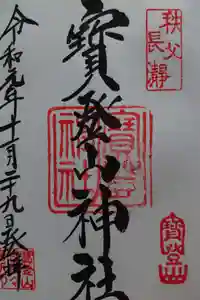 秩父
長瀞
寳登山神社
寶登山
令和元年十一月二十九日奉拝